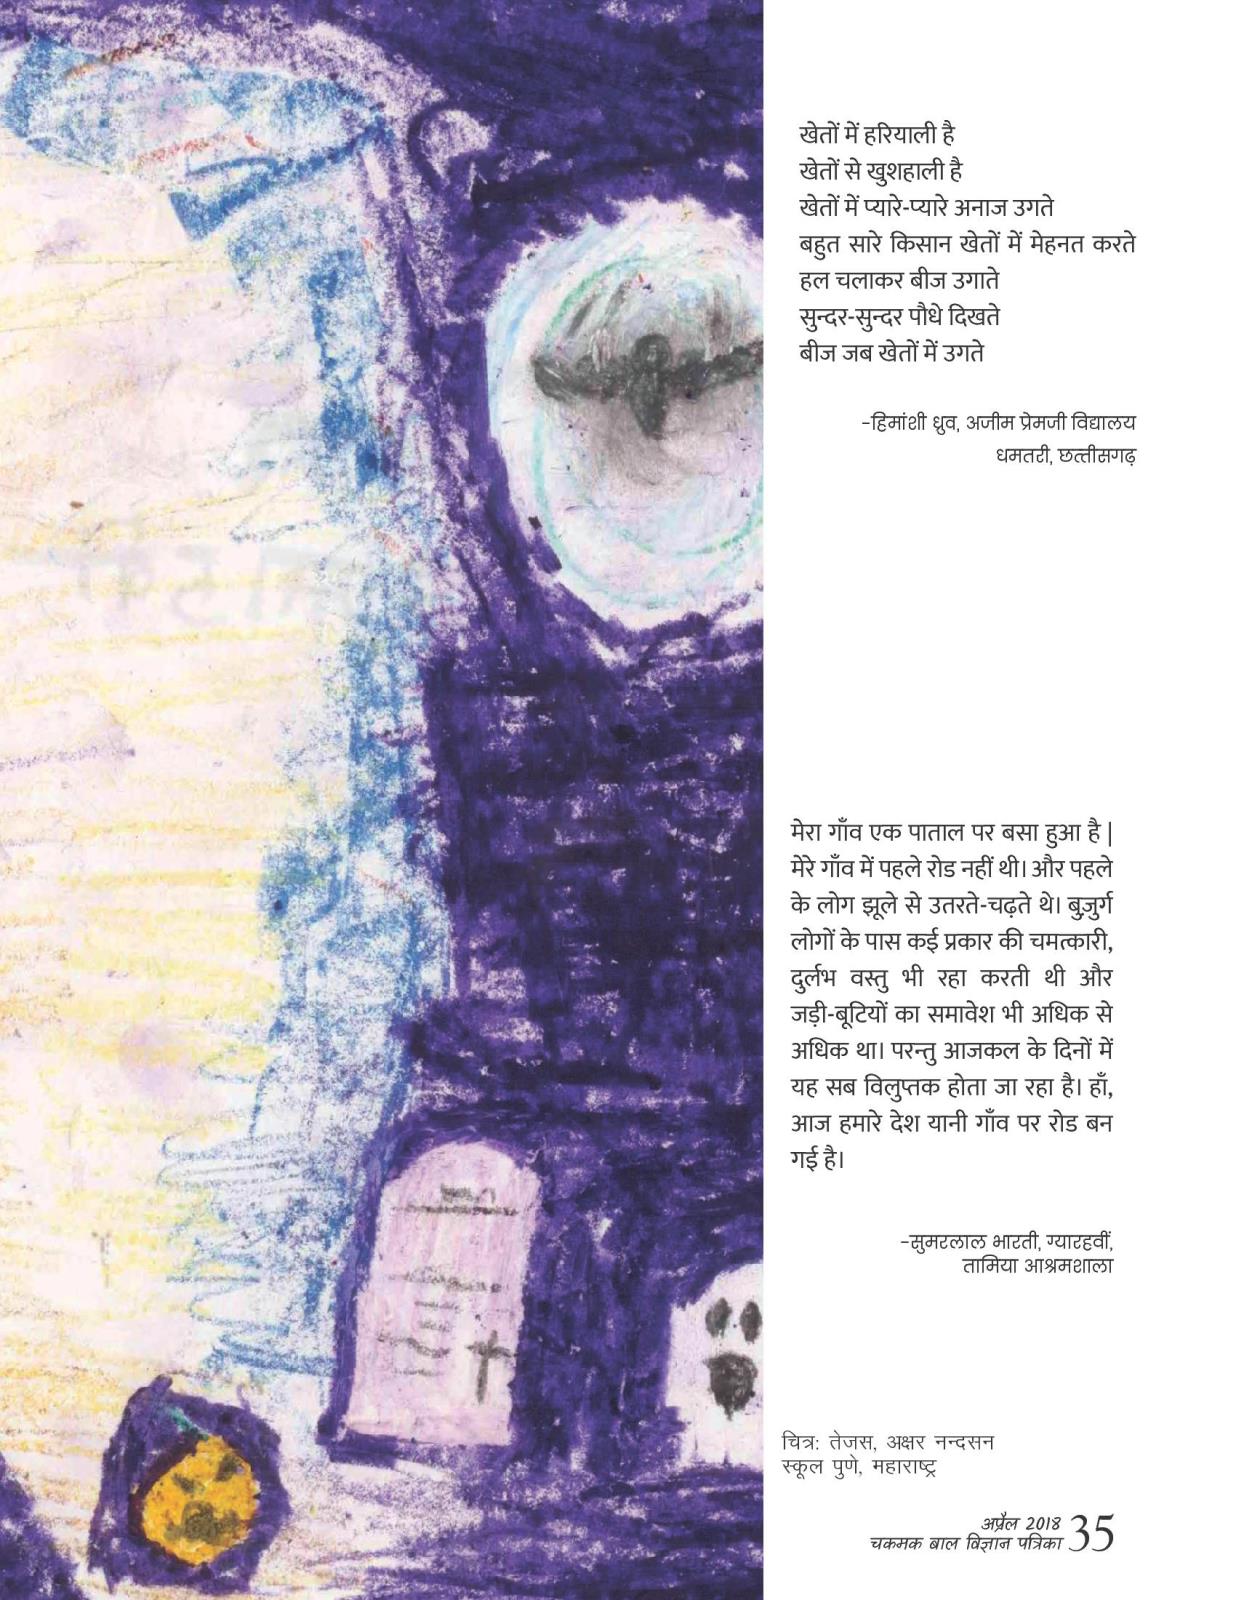 खेतों में हरियाली है
खेतों से खुशहाली है
खेतों में प्यारे-प्यारे अनाज उगते
बहुत सारे किसान खेतों में मेहनत करते
हल चलाकर बीज उगाते
सुन्दर-सुन्दर पौधे दिखते
बीज जब खेतों में उगते
–हिमांशी ध्रुव, अजीम प्रेमजी विद्यालय
धमतरी, छत्तीसगढ़
मेरा गाँव एक पाताल पर बसा हुआ है |
मेरे गाँव में पहले रोड नहीं थी। और पहले
के लोग झूले से उतरते-चढ़ते थे। बुज़ुर्ग
लोगों के पास कई प्रकार की चमत्कारी,
दुर्लभ वस्तु भी रहा करती थी और
जड़ी-बूटियों का समावेश भी अधिक से
अधिक था। परन्तु आजकल के दिनों में
यह सब विलुप्तक होता जा रहा है। हाँ,
आज हमारे देश यानी गाँव पर रोड बन
गई है।
–सुमरलाल भारती, ग्यारहवीं,
तामिया आश्रमशाला
चित्र: तेजस, अक्षर नन्दसन
स्कूल पुणे, महाराष्ट्र
अप्रैल 2018
चकमक बाल विज्ञान पत्रिका 35